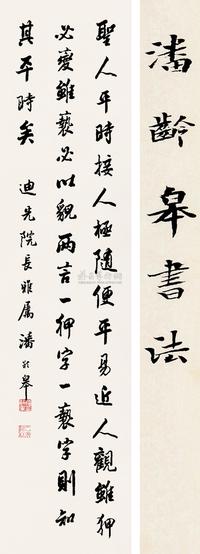 潘齡皋書法
聖人平時接人極隨便平易近人觀雖狎
必變雖褻必以貌兩言一狎字一褻字則知
其平時矣
迪先院長雅属 潘齡皋